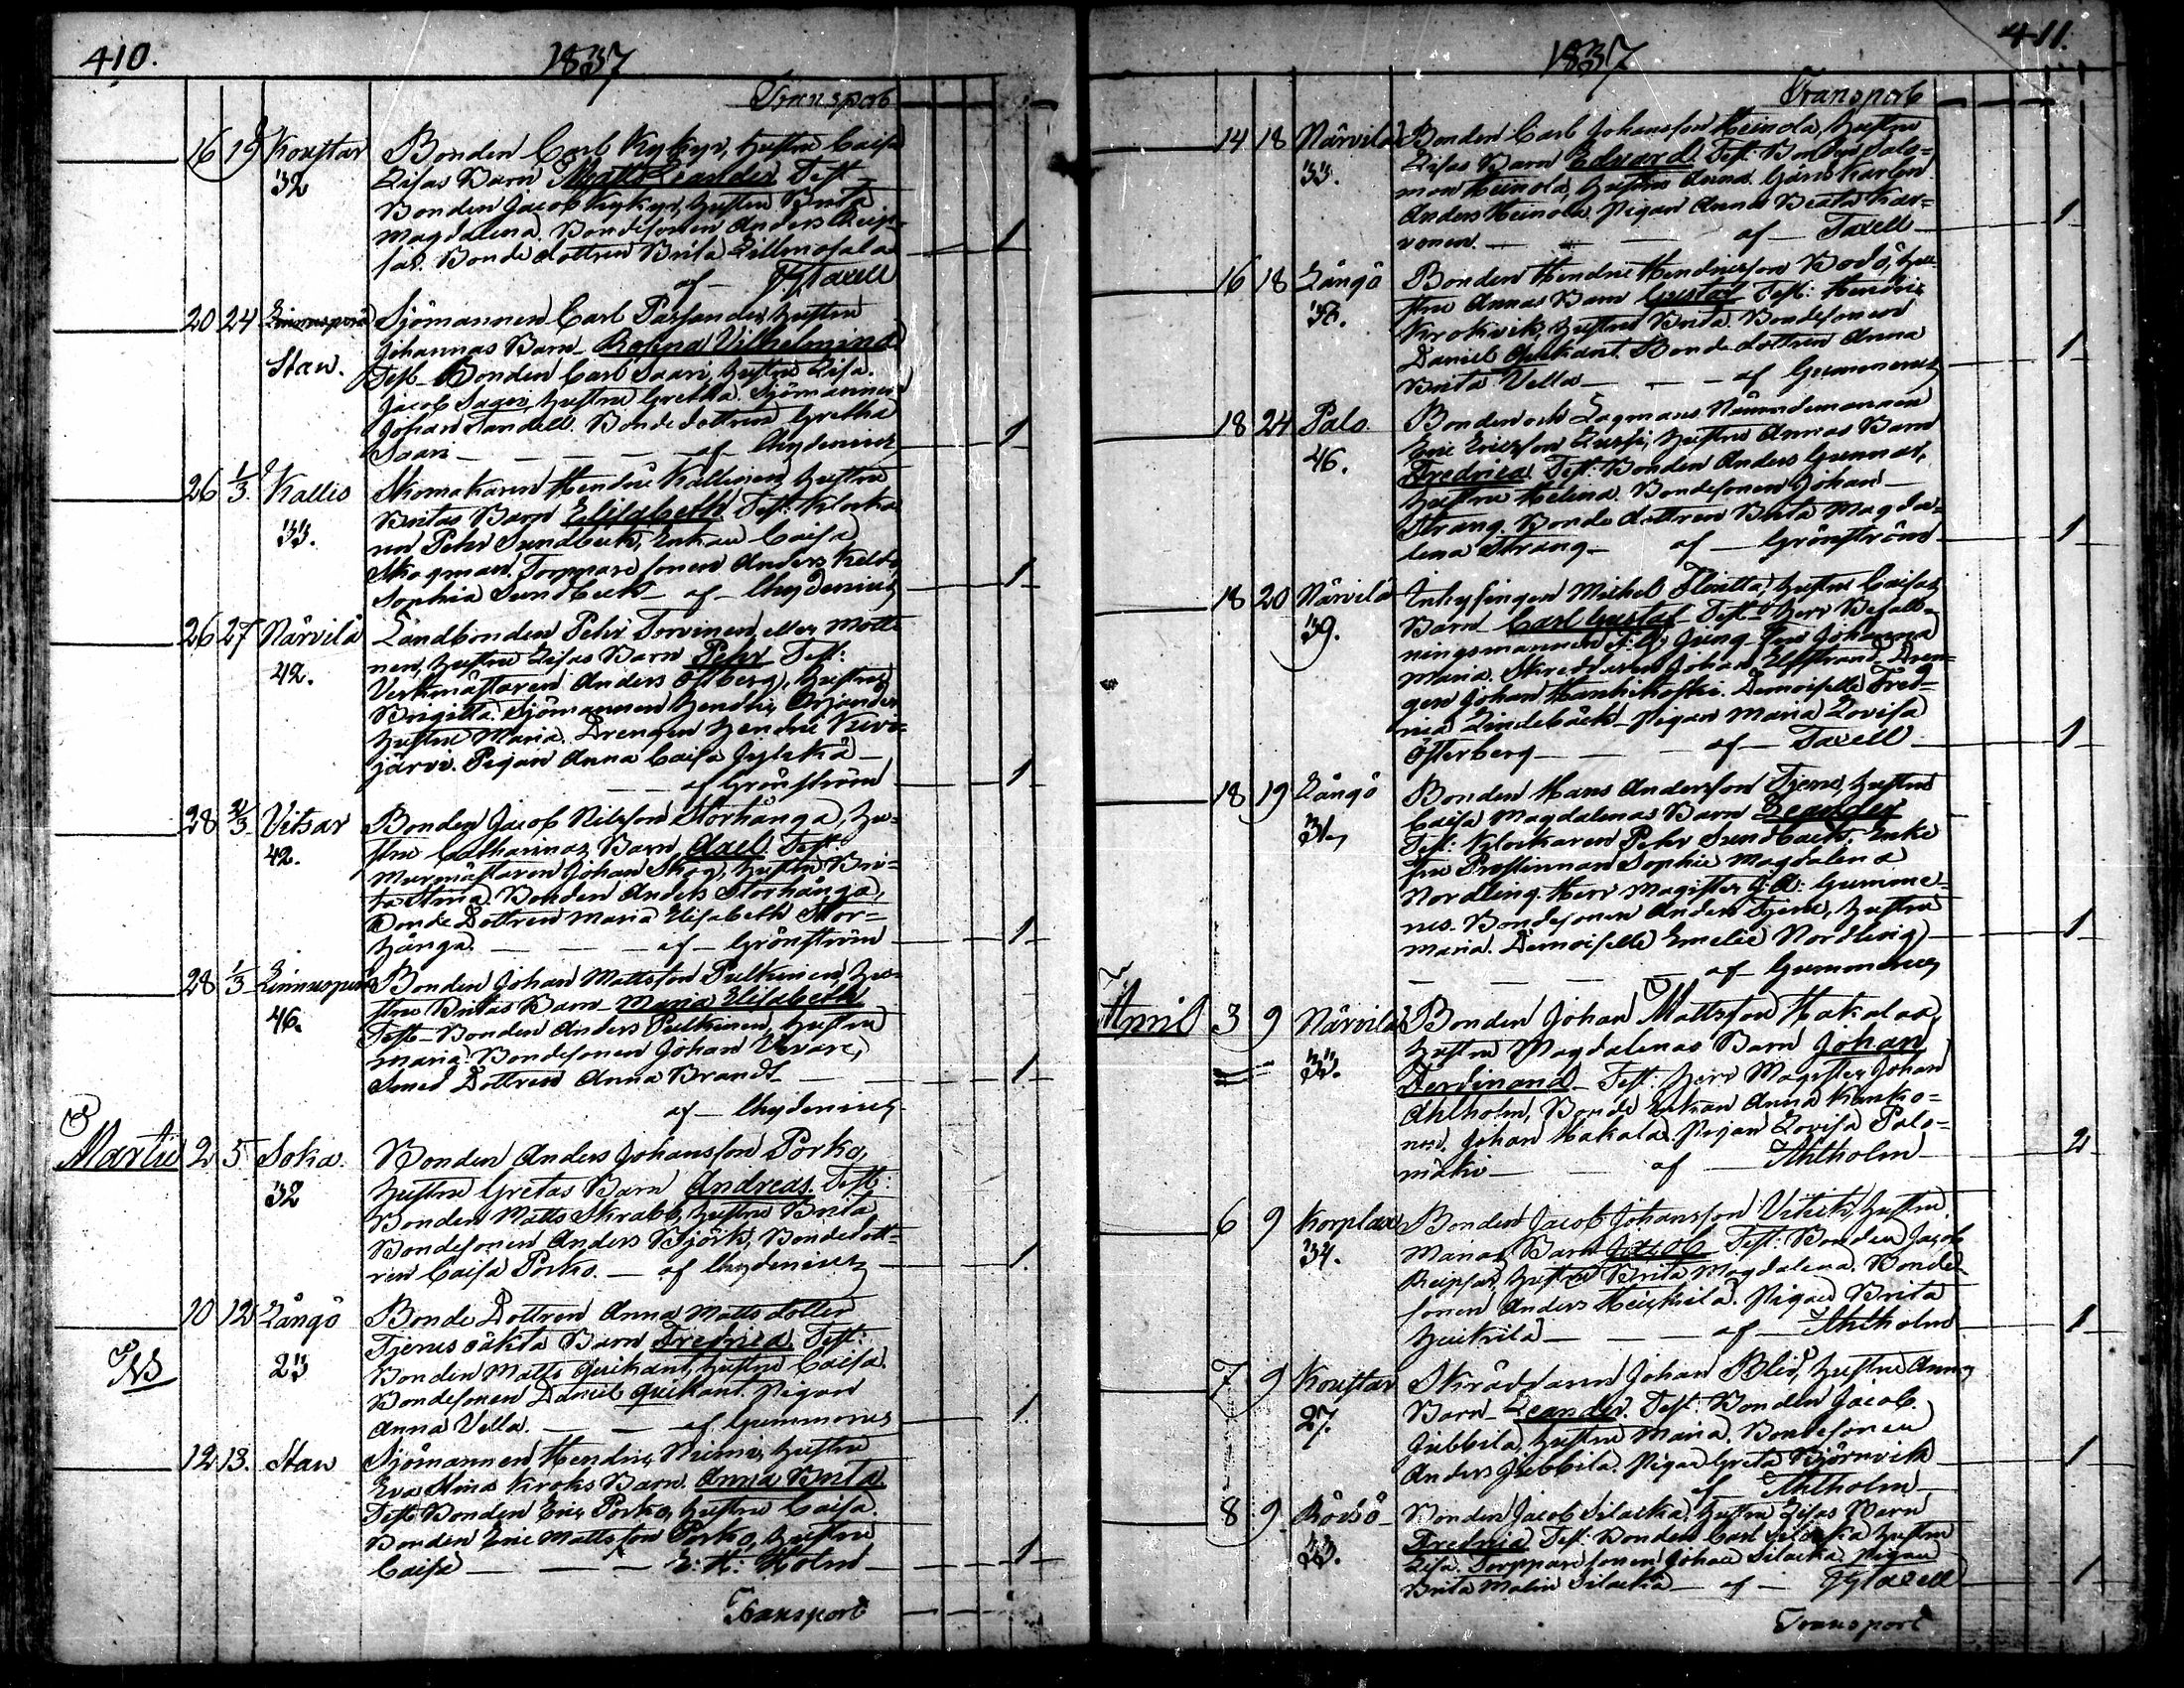 410.
1837
Transport
16 19 Koustar Bonden Carl Kykyr, hustru Caisa
32 Lisas Barn Matts Leander Test
Bonden Jacob Kykyr, hustru Brita
Magdalena. Bondesonen Anders Reip-
sar. Bonde dottren Brita Lillmosala
af FG Taxell
1
20 24 Sjömannen Carl Passander, hustru
Stan. Johannas Barn Rosina Vilhelmina
Test Bonden Carl Saari, hustru Lisa.
Jacob Sager, hustru Gretha. Sjömannen
Johan Sandell. Bonde dottren Gretha
Saari af Chydenius 1
26 1/3 Kallis Skomakaren Hendric Kallinen, hustru
33. Britas Barn Elisabeth. Test: Klocka
ren Pehr Sundback, Enkan Caisa
Skogman. Torpare sonen Anders Kello
Sophia Sundback af Chydenius 1
26 27 Närvilä Landbonden Pehr Torvinen eller Motti
42. nen, hustru Lisas Barn Pehr Test:
Verkmästaren Anders Östberg, hustru
Brigitta. Sjömannen Hendric
hustru Maria. Drengen Hendric Kive-
järvi. Pigan Anna Caisa Jylckä
af Grönström 1
28 2/3 Vitsar Bonden Jacob Nilsson Storhånga, hu-
42. stru Catharinas Barn Axel. Test:
Murmästaren Johan Skog, hustru Bri-
ta Stina. Bonden Anders Storhånga,
Bonde Dottren Maria Elisabeth Stor-
hånga. af Grönström 1
28 1/3 Linnusperä Bonden Johan Mattsson Pulkinen, hu-
46. stru Britas Barn Maria Elisabeth
Test Bonden Anders Pulkinen, hustru
Maria. Bondesonen Johan
Dottren Anna Brandt 1
af Chydenius
Martii 2 5 Soka. Bonden Anders Johansson Porko,
32 hustru Gretas Barn Andreas. Test:
Bonden Matts Skrabb, hustru Brita
Bondesonen Anders Björk, Bondedott-
ren Caisa Porko. af Chydenius 1
10 12 Långö Bonde Dottren Anna Matts dotter
NB 23 Tjerus oäkta Barn Fredrica. Test:
Bonden Matts Quikant, hustru Caisa.
Bondesonen Daniel Quikant. Pigan
Anna Vella. af Gummerus 1
12 13. Stan Sjömannen Hendric Niemi, hustru
Eva Stina Kroks Barn. Anna Brita
Test Bonden Eric Porko, hustru Caisa.
Bonden Eric Mattsson Porko, hustru
Caisa E: H: Holm 1
Transport
411.
1837
Transport
14 18 Närvilä Bonden Carl Johansson Heinola, hustru
33. Lisas Barn Edvard. Test: Bonden Salo-
mon Heinola, hustru Anna. Gårdskarlen
Anders Heinola. Pigan Anna Beata Kar-
vonen. af Taxell 1
16 18 Långö Bonden Hendric Hendricsson Bodö, hu-
38. stru Annas Barn Gustaf Test: Hendric
Krokvik, hustru Brita. Bondesonen
Daniel Quikant. Bonde dottren Anna
Brita Vella af Gummerus 1
18 24 Palo. Bonden och Lagmans Nämndemannen
46. Eric Ericsson Lussi, hustru Annas Barn
Fredrica Test: Bonden Anders Gunnar,
hustru Helena. Bondesonen Johan
Strang. Bonde dottren Brita Magda-
lena Strang af Grönström 1
18 20 Närvilä Inhysingen Michel Floitta, hustru Caisas
39. Barn Carl Gustaf Test Herr Befall-
ningsmannen F: G: Jung, fru Johanna
Maria. Skreddaren Johan Elfstrand Dren-
gen Johan Mankikoski. Demoiselle Fred-
rica Lindebäck Pigan Maria Lovisa
Österberg af Taxell 1
18 19 Långö Bonden Hans Andersson Tjeru, hustru
31, Caisa Magdalenas Barn Leander
Test: Klockaren Pehr Sundback, Enke
fru Prostinnan Sophie Magdalena
Nordling. Herr Magister J: A: Gumme-
rus. Bondesonen Anders Tjeru, hustru
Maria. Demoiselle Emelie Nordling 1
af Gummerus
April 3 9 Närvilä Bonden Johan Mattsson Hakala,
33. hustru Magdalenas Barn Johan
Ferdinand Test: Herr Magister Johan
Ahlholm, Bonde Enkan Anna Kanko-
nen. Johan Hakala. Pigan Lovisa Palo-
mäki af Ahlholm 2
6 9 Korplax Bonden Jacob Johansson Vitick, hustru
34. Marias Barn Jacob Test: Bonden Jacob
Reipsar, hustru Brita Magdalena. Bonde-
sonen Anders Heickila. Pigan Brita
Heikila af Ahlholm 1
7 9 Koustar Skräddaren Johan Blis, hustru Annas
27. Barn Leander. Test: Bonden Jacob
Jubbila, hustru Maria. Bondesonen
Anders Jubbila. Pigan Greta Björnvik 1
af Ahlholm
8 9 Rödsö Bonden Jacob Silacka, hustru Lisas Barn
33. Fredrica Test: Bonden Carl Silacka hustru
Lisa. Torppare sonen Johan Silacka. Pigan
Brita Malin Silacka af FG Taxell 1
Transport